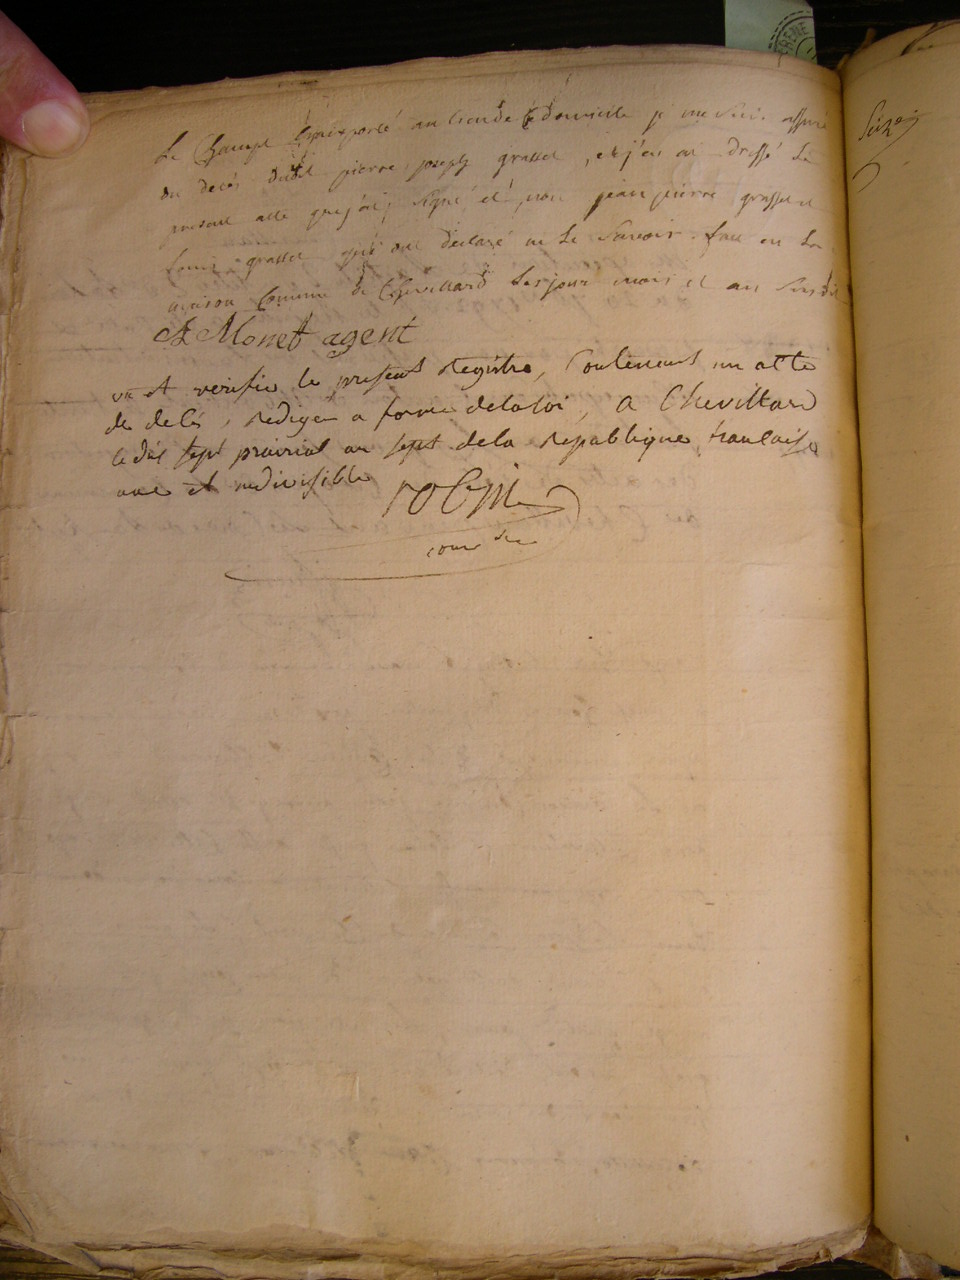 Le Champ transporté au lieu de ce domicile je me suis assuré
du decés dudit pierre joseph grasset, et j'en ai dressé le
présent atte que j'ai signé et non jean pierre grasset et
louis grasset qui ont déclaré ne le savoir. fait en la
maison Commune de Chevillard les jour mois et an susdit
Monet agent
vu et verifie le present Registre, Contenent un atte
de delés, rédiger a forme de la loi, a Chevillard
le dit sept prairial an sept de la République francaise
une et indivisible